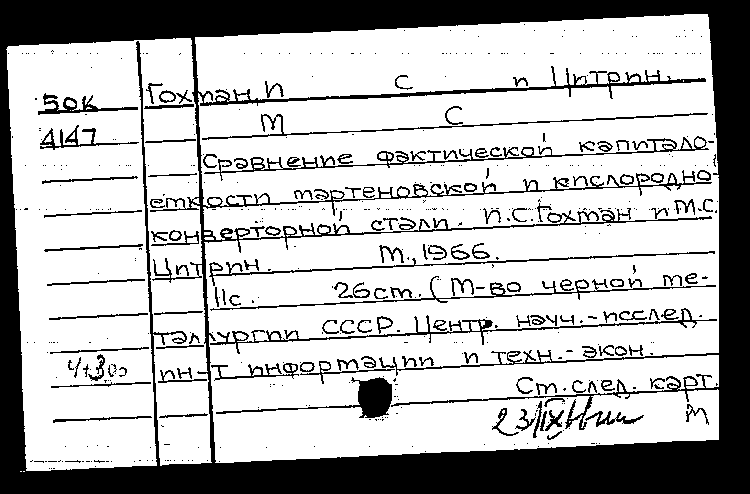 50к Гохман, И С и Цитрин.
4147 М С
Сравнение фактической капитало-
емкости мартеновской и кислородно-
конверторной стали. И.С. Гохман и М.С.
Цитрин. М., 1966.
11с. 26см. (М-во черной ме-
таллургии СССР. Центр. науч.-исслед.
ин-т информации и техн.-экон.
См. след. карт.
23/IX М